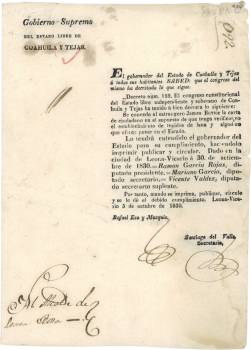 Gobierno Supremo
DEL ESTADO LIBRE DE
COAHUILA Y TEJAS.
El gobernador del Estado de Coahuila y Tejas
á todos sus habitantes SABED: que el congreso del
mismo ha decretado lo que sigue.
Decreto núm. 152. El congreso constitucional
del Estado libre independiente y soberano de Coahuila
y Tejas ha tenido á bien decretar lo siguiente:
Se concede al estrangero James Bowie la carta
de ciudadano en el supuesto de que traiga
el establecimiento de tegidos de lana y
que ofrece poner en el Estado.
Lo tendrá entendido el gobernador del Estado
para su cumplimiento, haciendolo
imprimir publicar y circular. Dado en la
ciudad de Leona-Vicario á 30 de setiembre
de 1830.—Ramon Garcia Rojas,
diputado presidente.—Mariano Garcia,
diputado secretario.—Vicente Valdez, diputado
secretario suplente.
Por tanto, mando se imprima, publique, circule y
se le dé el debido cumplimiento. Leona-Vicario
5 de octubre de 1830.
Rafael Eca y Musquiz.
Santiago del Valle,
Secretario.
Alcalde de